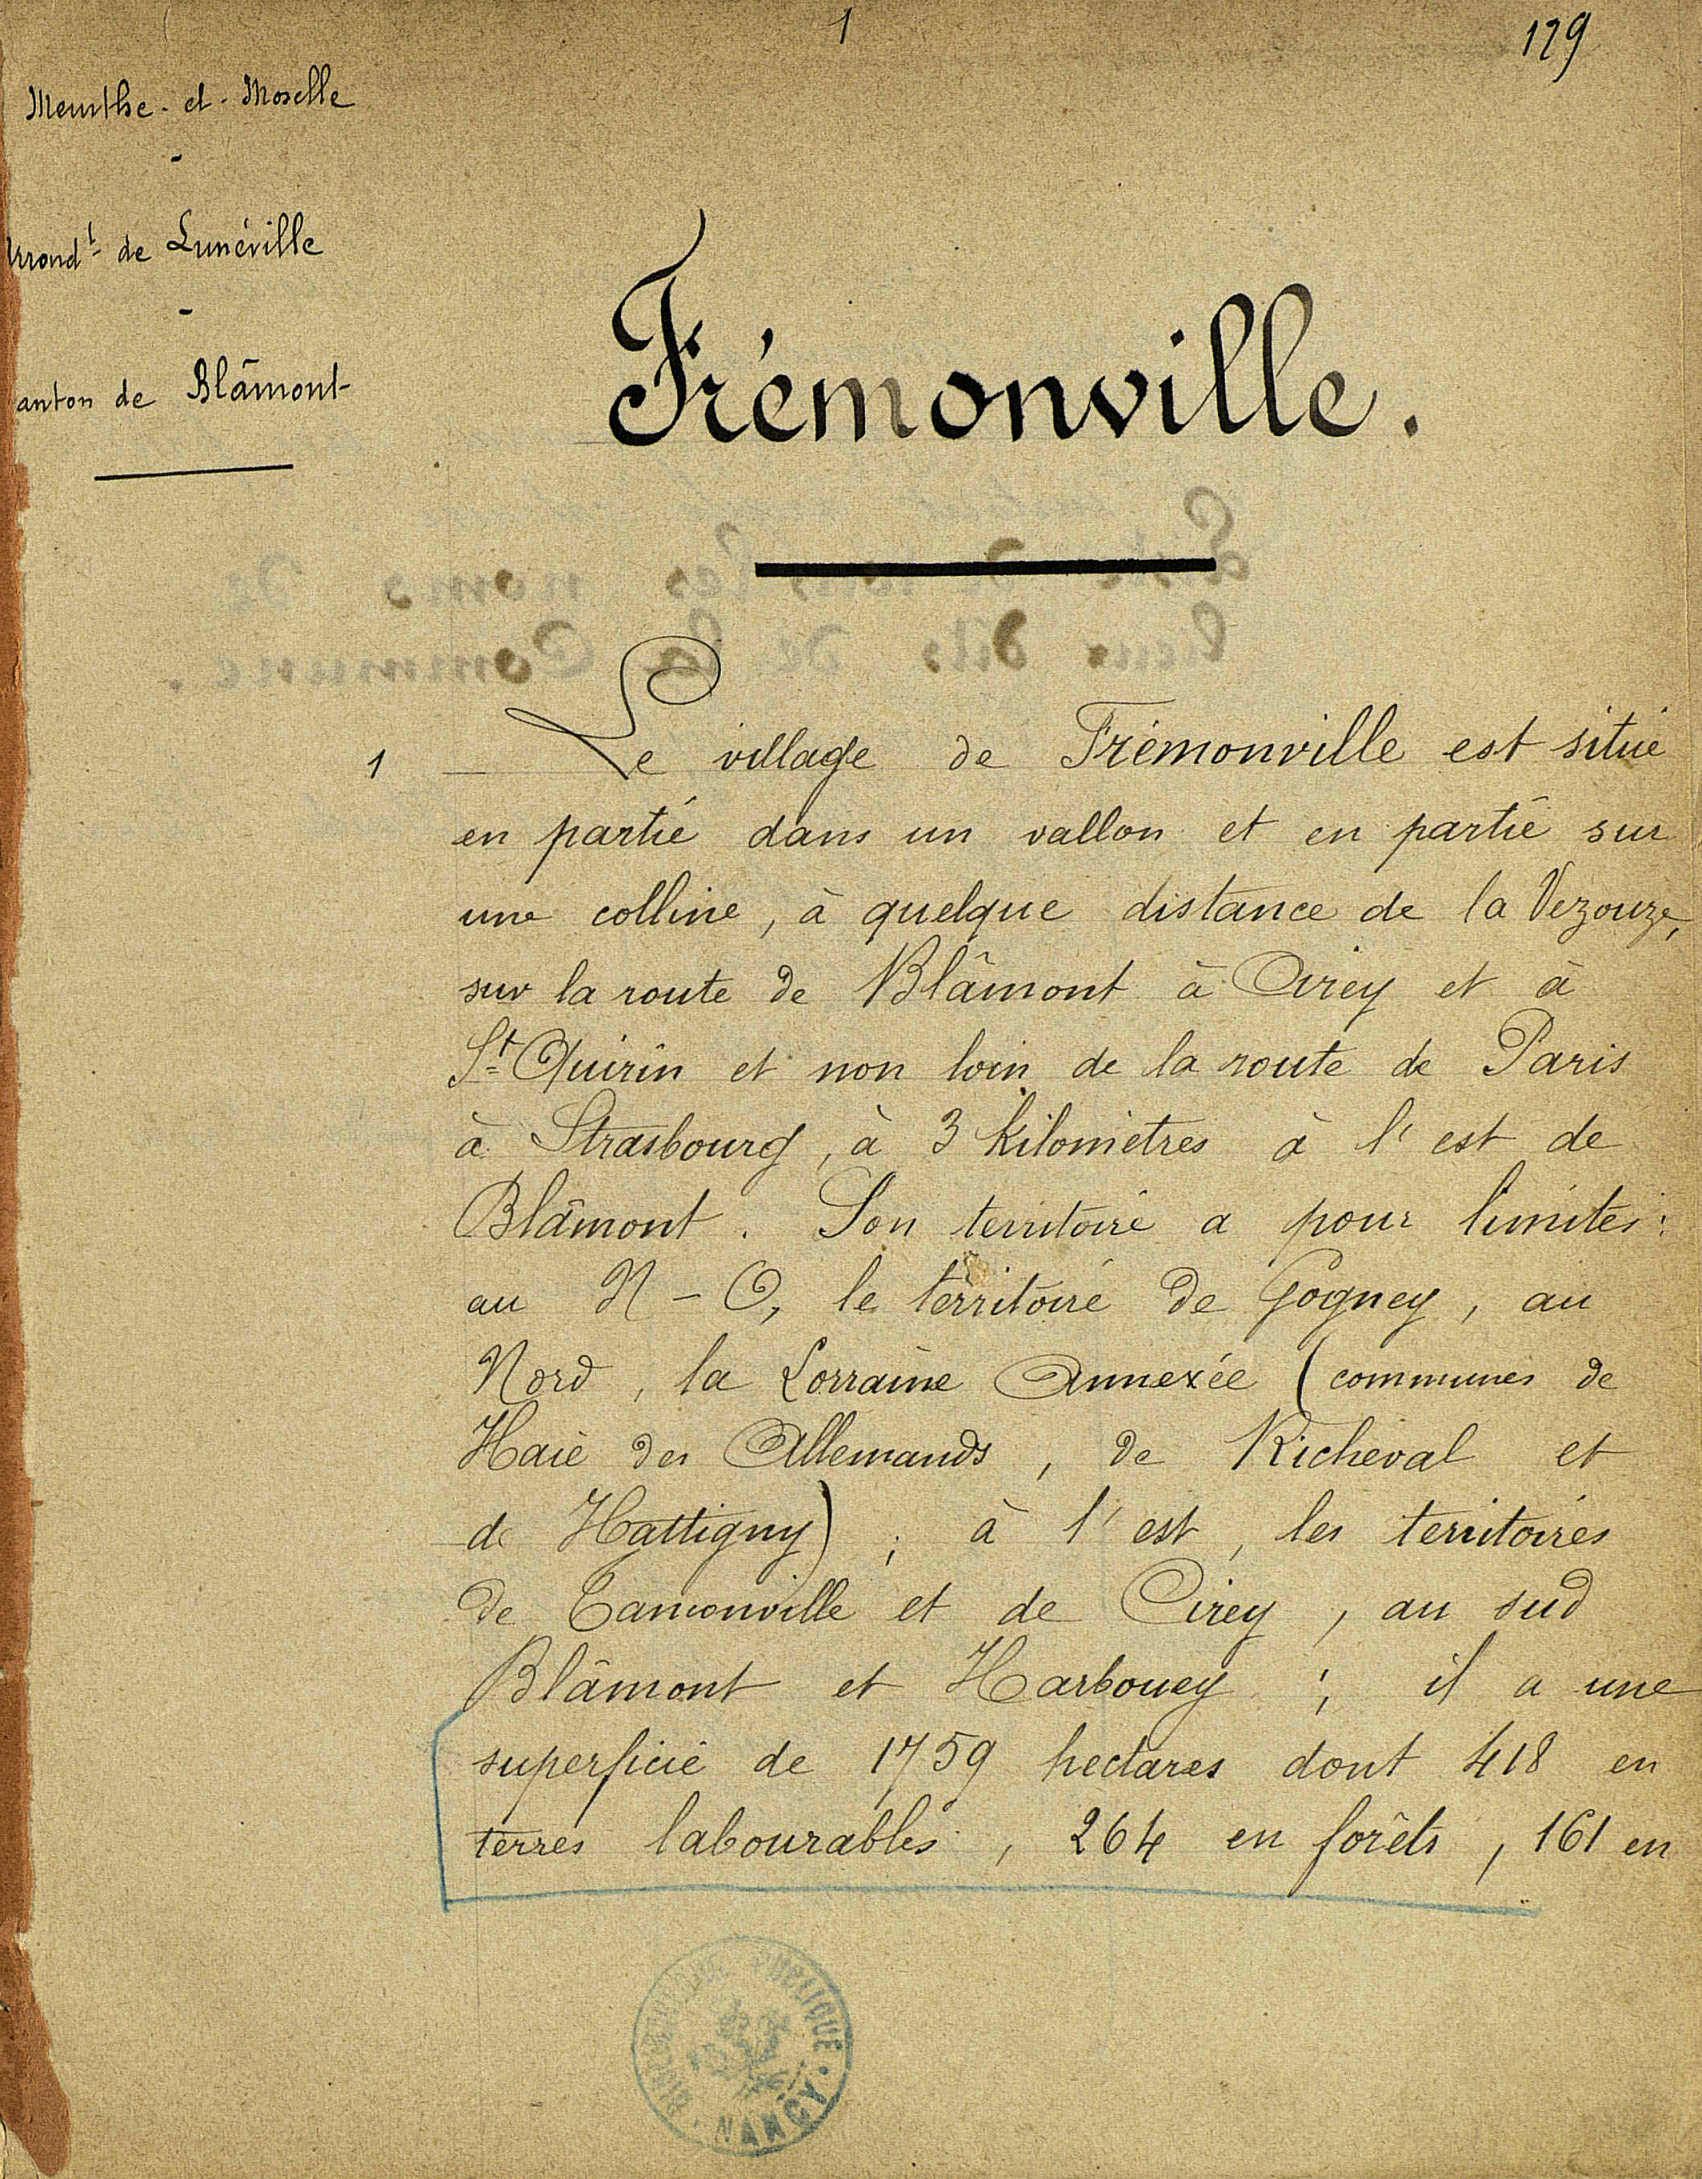 1
129
Meurthe-et-Moselle
-
Arrondt de Lunéville
-
anton de Blâmont
Frémonville.
1
Le village de Frémonville est situé
en partie dans un vallon et en partie sur
une colline, à quelque distance de la Vezouze,
sur la route de Blâmont à Cirey et à
St Quirin et non loin de la route de Paris
à Strasbourg, à 3 kilomètres à l'est de
Blâmont. Son territoire a pour limites:
au N-O, le territoire de Gogney, au
Nord, la Lorraine Annexée (communes de
Haie des Allemands, de Richeval et
de Hattigny); à l'est, les territoires
de Tanconville et de Cirey, au sud
Blâmont et Harbouey; il a une
superficie de 1759 hectares dont 418 en
terres labourables, 264 en forêts, 161 en
BIBLIOTHEQUE PUBLIQUE
NANCY